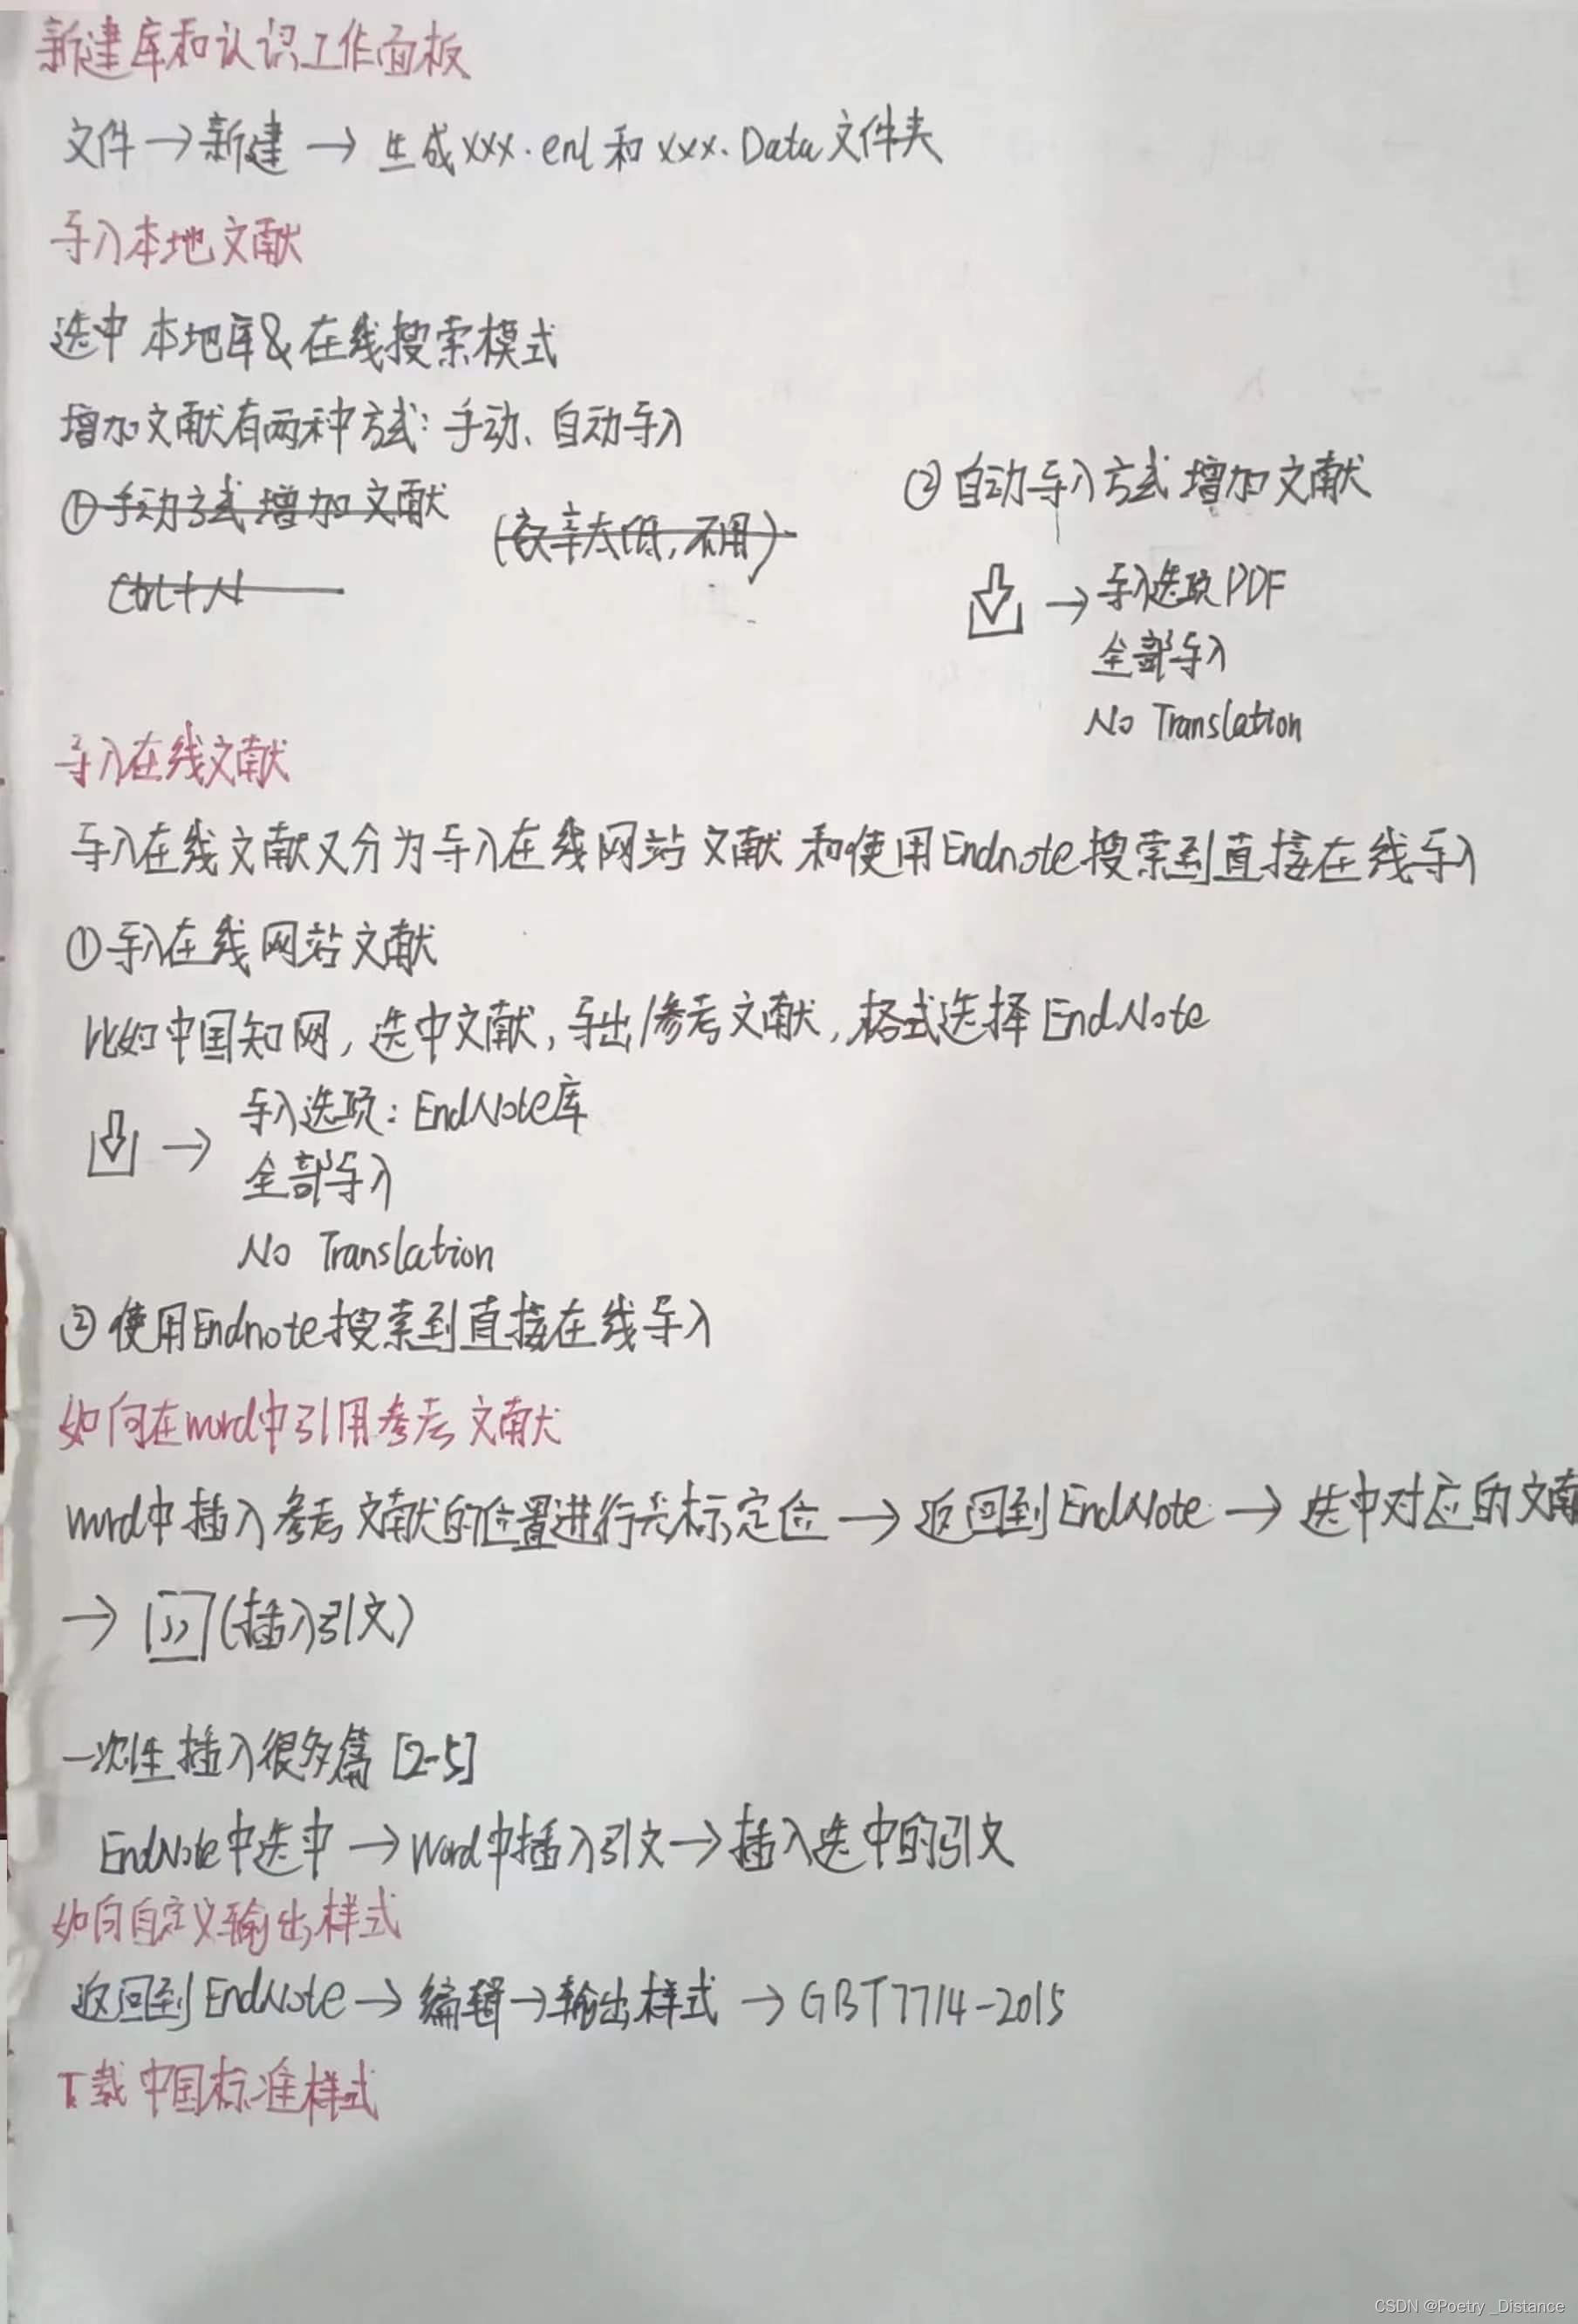 新建库和认识工作面板
文件→新建→生成xxx.enl和xxx.Data文件夹
导入本地文献
选中本地库&在线搜索模式
增加文献有两种方式:手动、自动导入
①手动方式增加文献
(效率太低,不用)
Ctrl+N
②自动导入方式增加文献
→导入选项PDF
全部导入
No Translation
导入在线文献
导入在线文献又分为导入在线网站文献和使用Endnote搜索到直接在线导入
①导入在线网站文献
比如中国知网,选中文献,导出/参考文献,格式选择EndNote
→导入选项:EndNote库
全部导入
No Translation
②使用Endnote搜索到直接在线导入
如何在word中引用参考文献
word中插入参考文献的位置进行光标定位→返回到EndNote→选中对应的文献
→(插入引文)
一次性插入很多篇[2-5]
EndNote中选中→Word中插入引文→插入选中的引文
如何自定义输出样式
返回到EndNote→编辑→输出样式→GBT7714-2015
下载中国标准样式
CSDN @Poetry _Distance